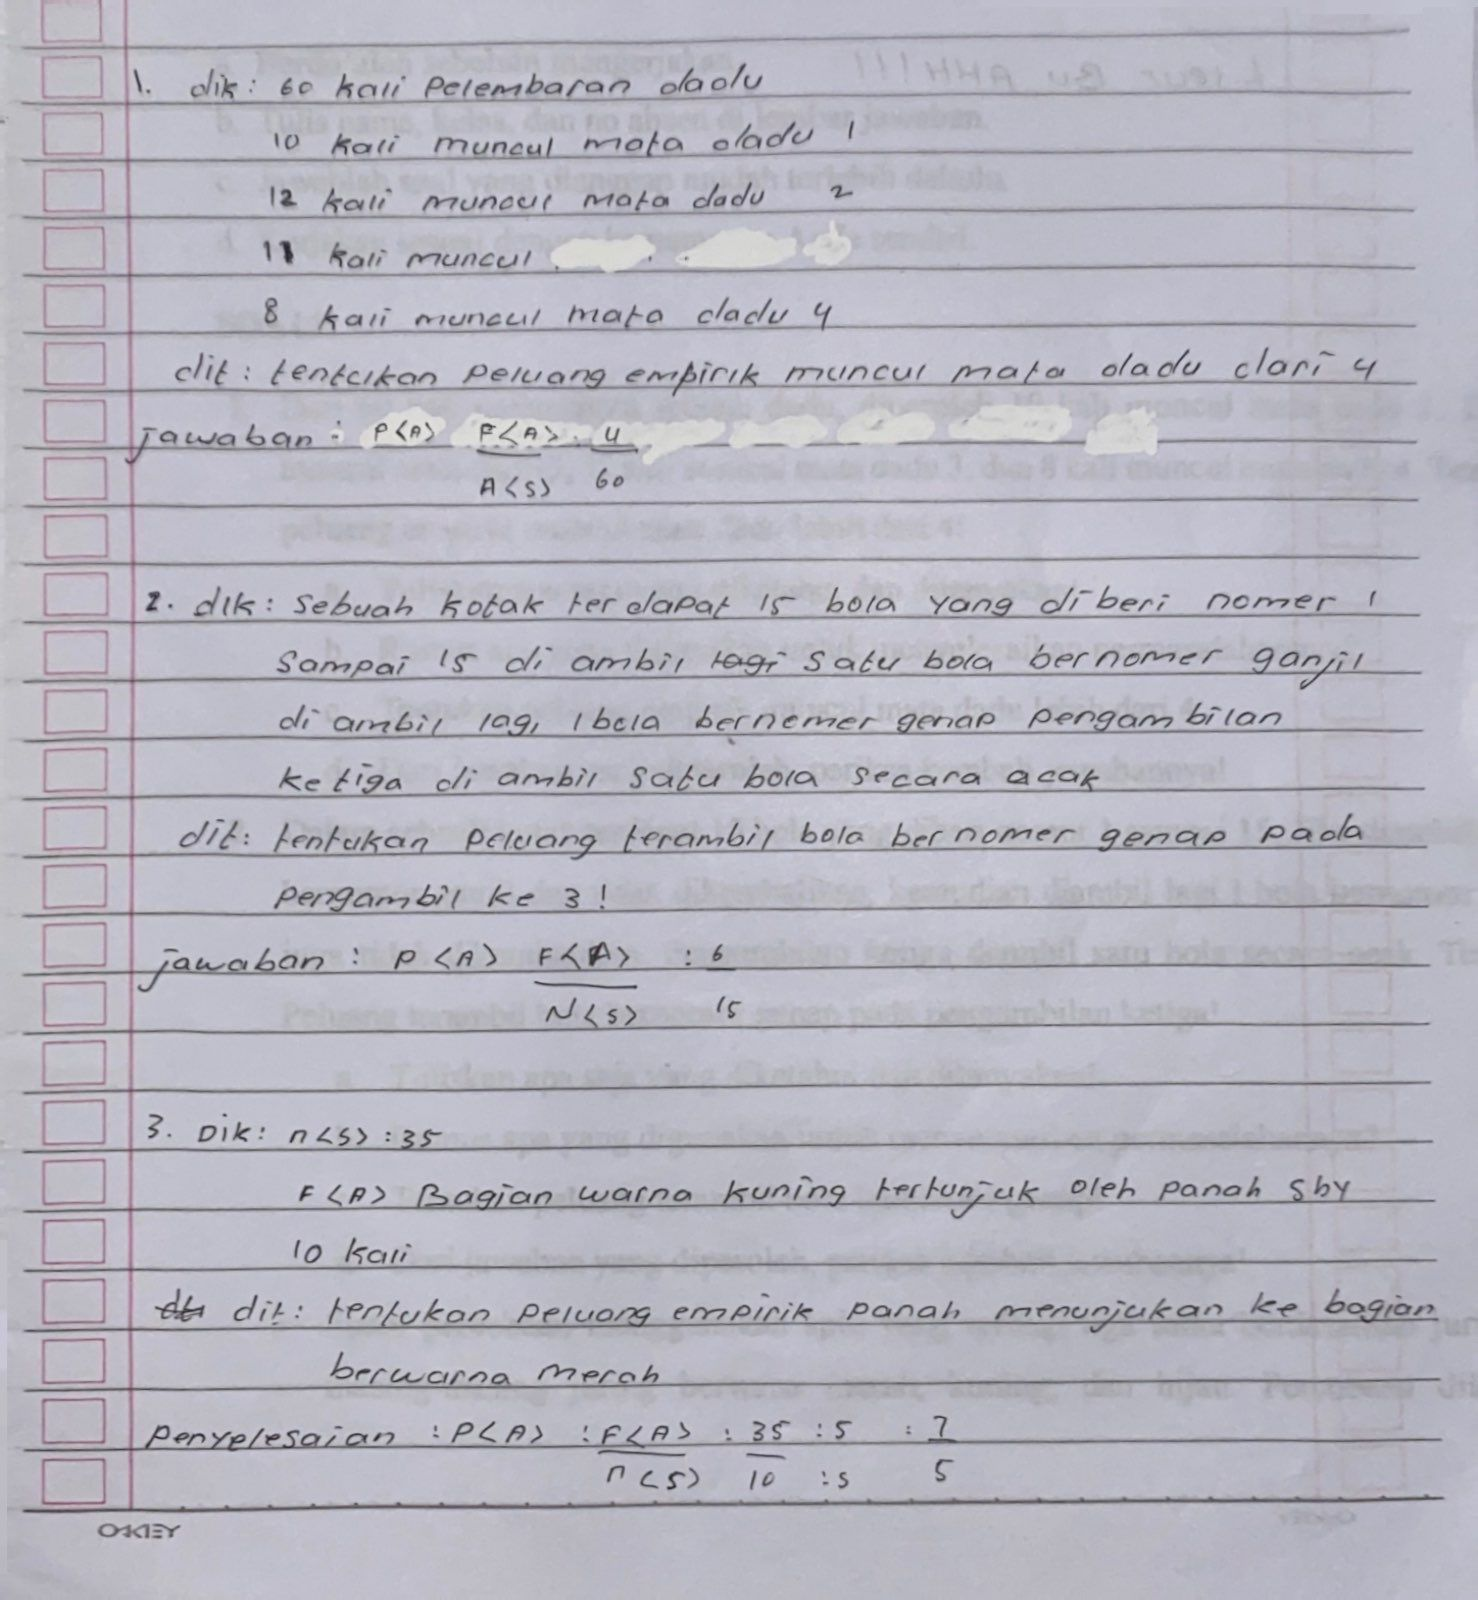 1. dik: 60 kali Pelembaran dadu
10 kali muncul mata dadu 1
12 kali muncul mata dadu 2
11 kali muncul
8 kali muncul mata dadu 4
dit: tentukan peluang empirik muncul mata dadu dari 4
jawaban: P<A> F<A> : 4
A<S> 60
2. dik: Sebuah kotak terdapat 15 bola yang diberi nomer 1
Sampai 15 di ambil lagi satu bola bernomer ganjil
di ambil lagi 1 bola bernemer genap pengambilan
ketiga di ambil satu bola secara acak
dit: tentukan peluang terambil bola bernomer genap pada
pengambil ke 3!
jawaban: P<A> F<A> : 6
N<S> 15
3. Dik: n<S> : 35
F<A> Bagian warna kuning tertunjuk oleh panah sby
10 kali
dit: tentukan peluang empirik panah menunjukan ke bagian
berwarna merah
Penyelesaian : P<A> : F<A> : 35 : 5 : 7
n<S> 10 : 5 5
OKEY